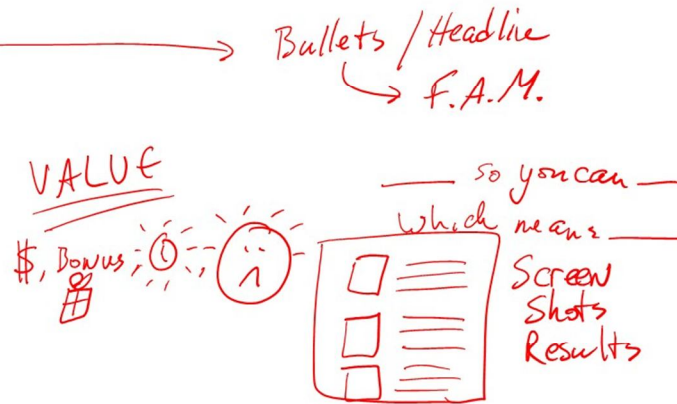 Bullets / Headline
F.A.M.
VALUE
$, Bonus,
so you can
which means
Screen
Shots
Results